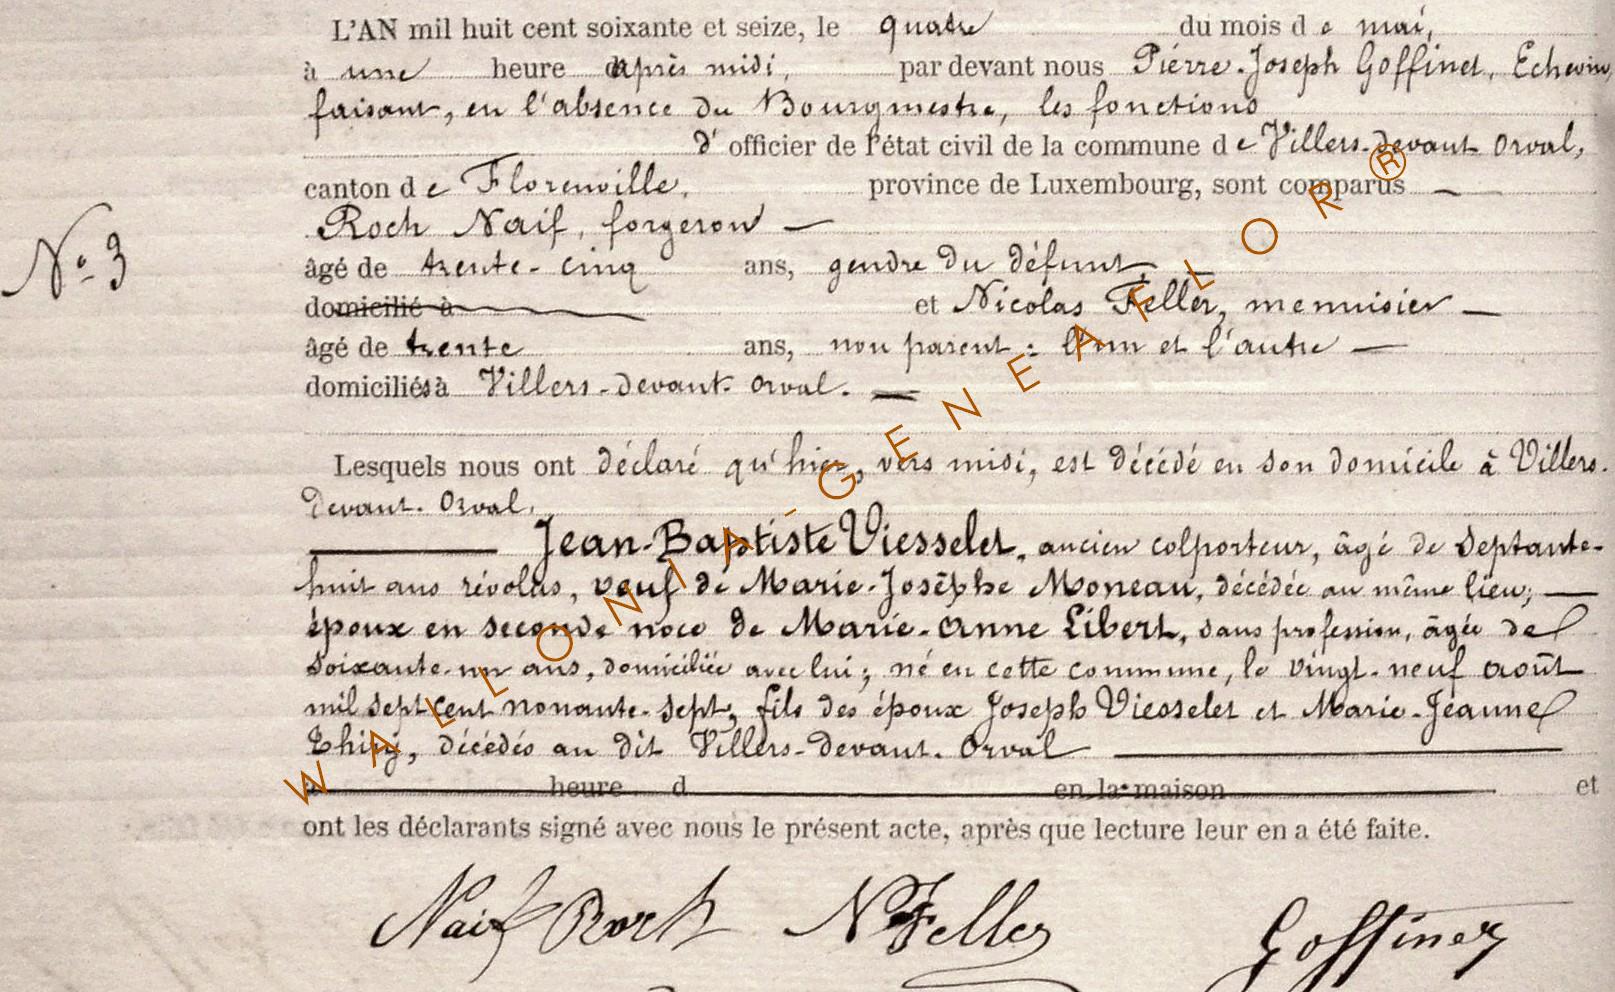 L'AN mil huit cent soixante et seize, le quatre du mois de mai,
à une heure après midi, par devant nous Piérre-Joseph Goffinet, Echevin,
faisant, en l'absence du Bourgmestre, les fonctions
d'officier de l'état civil de la commune de Villers-devant Orval,
canton de Florenville, province de Luxembourg, sont comparus
Roch Naif, forgeron
N° 3
âgé de trente-cinq ans, gendre du défunt,
domicilié à et Nicolas Feller, menuisier
âgé de trente ans, non parent : l'un et l'autre
domiciliés à Villers-devant-Orval.
Lesquels nous ont déclaré qu'hier, vers midi, est décédé en son domicile à Villers-
devant-Orval,
Jean-Baptiste Viesselet, ancien colporteur, âgé de septante-
huit ans révolus, veuf de Marie-Josèphe Moneau, décédée au même lieu,
époux en seconde noce de Marie-Anne Libert, sans profession, âgée de
soixante-un ans, domiciliée avec lui; né en cette commune, le vingt-neuf août
mil sept cent nonante-sept, fils des époux Joseph Viesselet et Marie-Jeanne
Thiry, décédés au dit Villers-devant-Orval
à heure d en la maison et
ont les déclarants signé avec nous le présent acte, après que lecture leur en a été faite.
Naif Roch N Feller Goffinet
WALLONIA-GENEAFLOR®